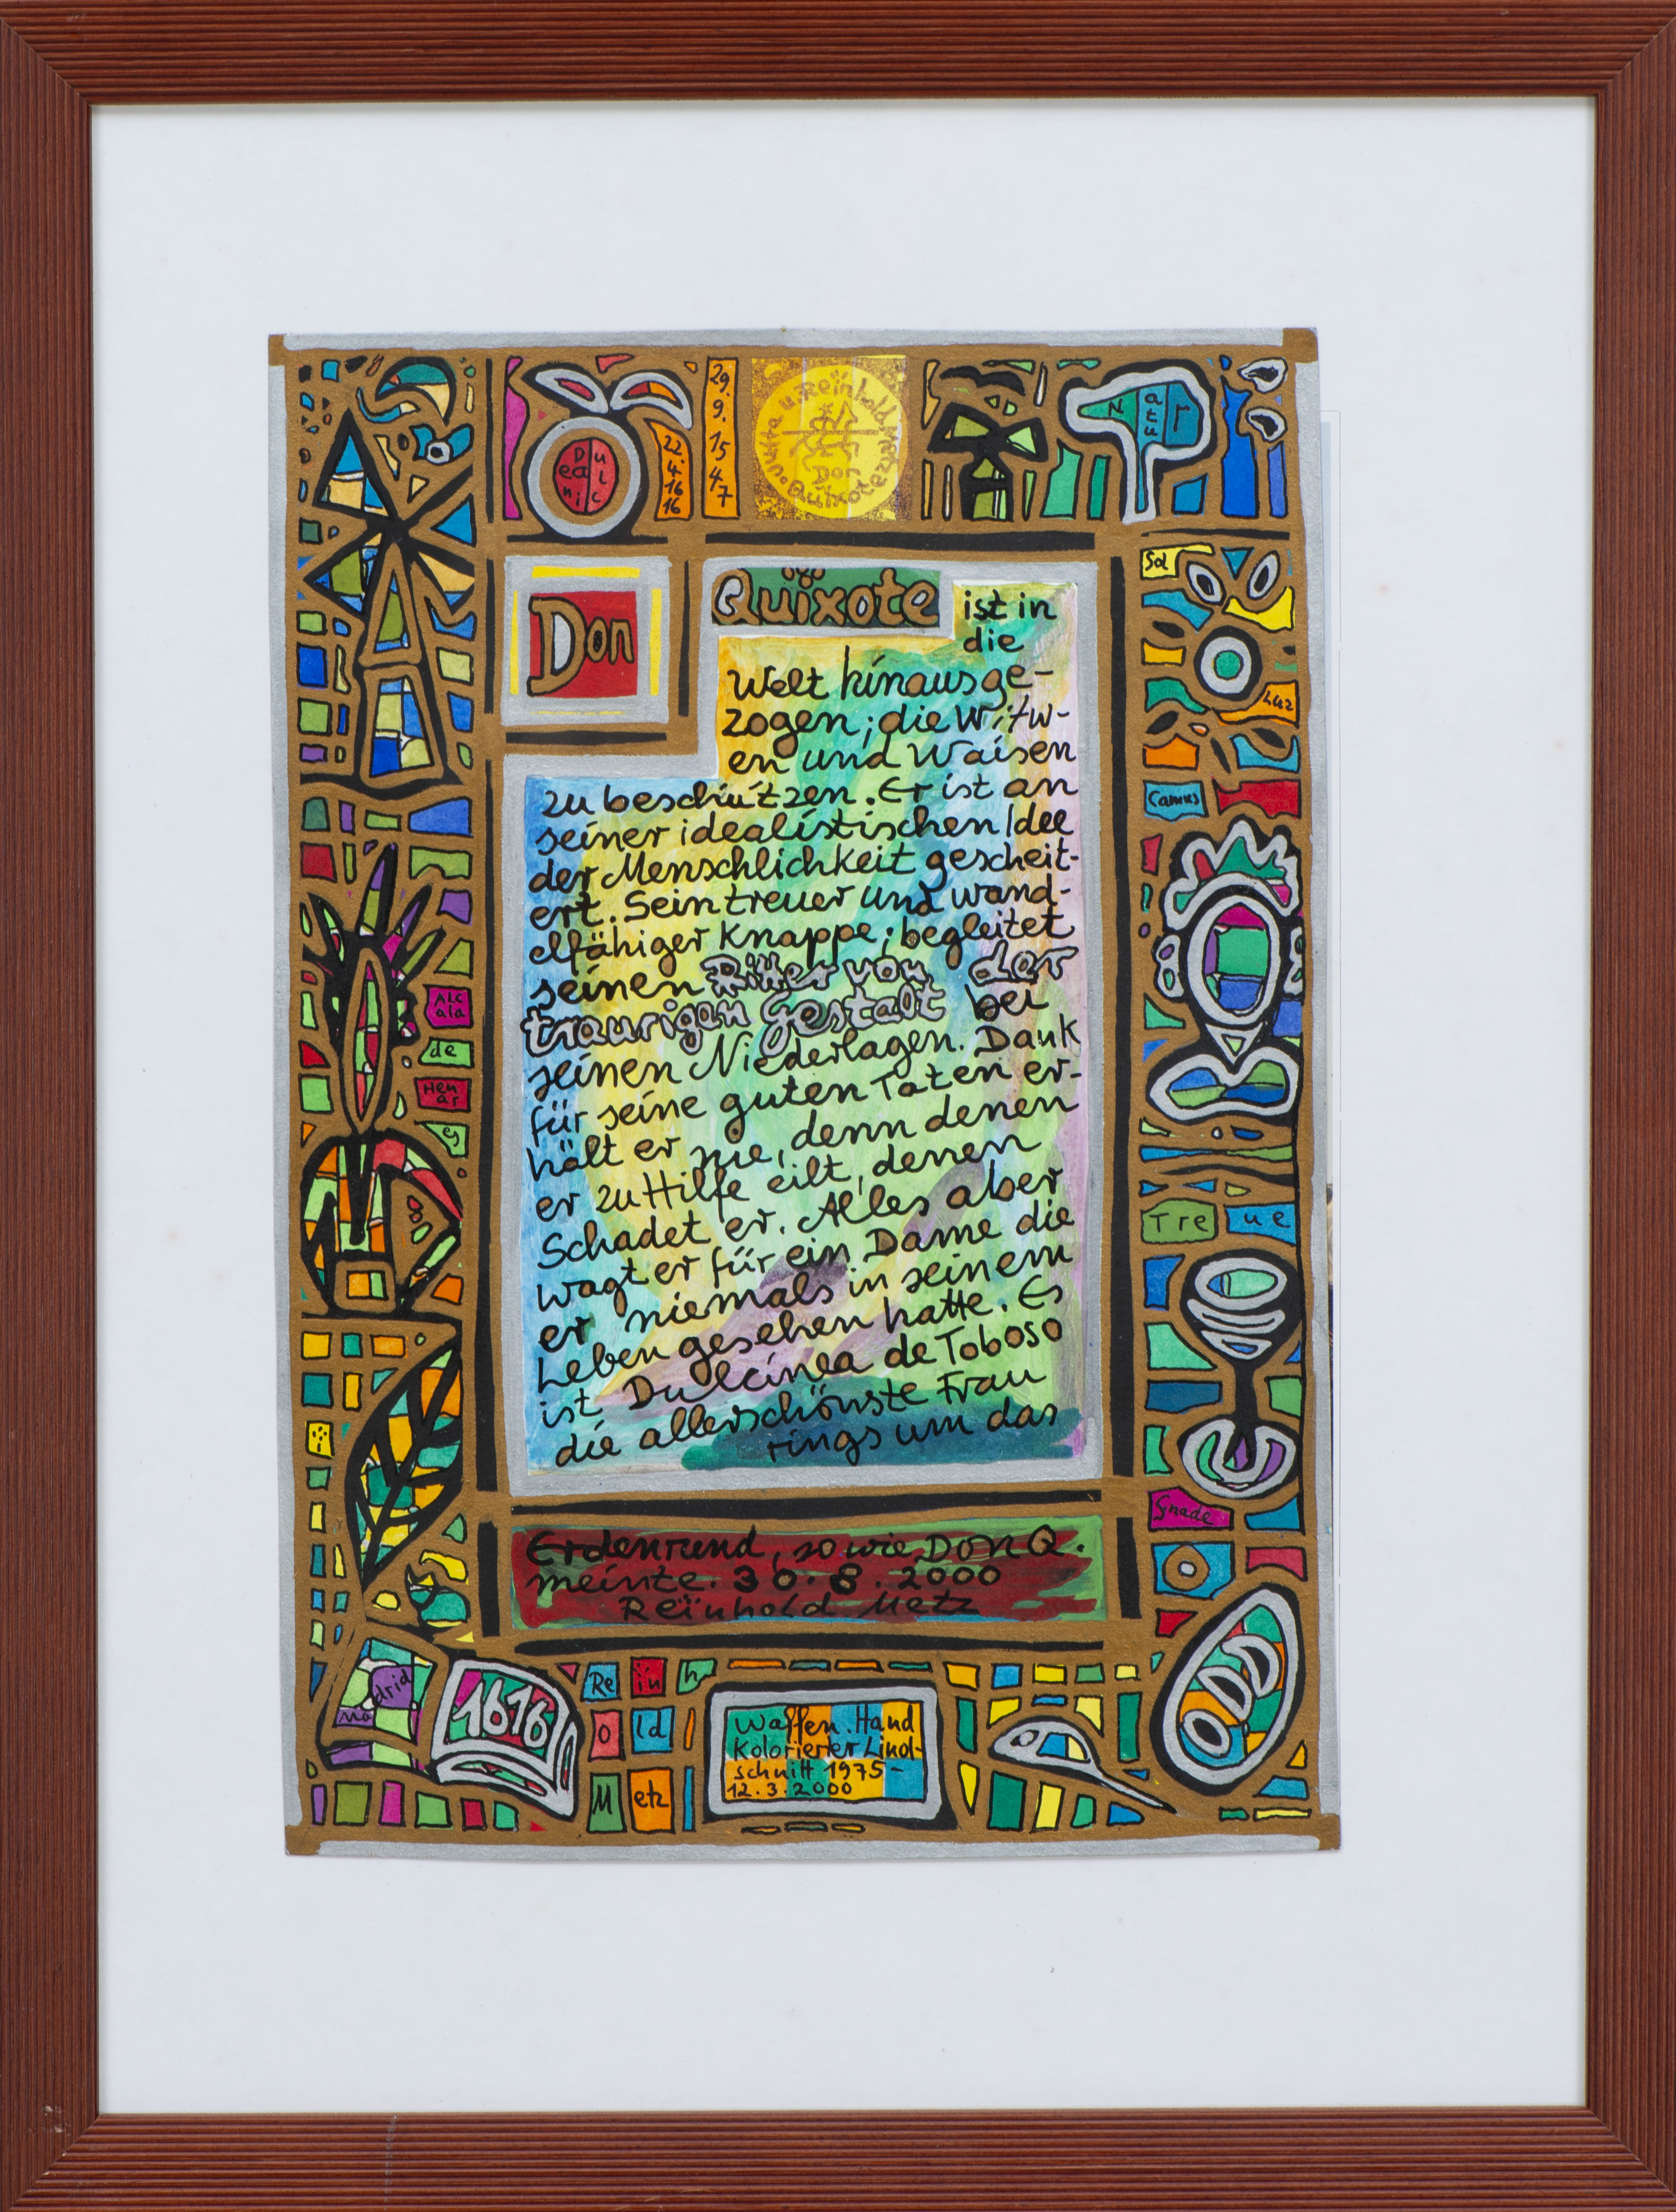 Natur
Dulcinea
22.
4.
16
16
29.
9.
15
47
Don
Quïxote ist in
die
Welt hinausge-
zogen; die Witw-
en und Waisen
zu beschützen. Er ist an
seiner idealistischen Idee
der Menschlichkeit gescheit-
ert. Sein treuer und wand-
elfähiger Knappe; begleitet
seinen Ritter von der
traurigen Gestalt bei
seinen Niederlagen. Dank
für seine guten Taten er-
hält er nie, denn denen
er zu Hilfe eilt, denen
Schadet er. Alles aber
wagt er für ein Dame die
er niemals in seinem
Leben gesehen hatte. Es
ist Dulcinea de Toboso
die allerschönste Frau
rings um das
Erdenrund, so wie Don Q.
meinte. 30.8.2000
Reïnhold Metz
Alc
ala
de
Hen
ar
es
Sol
Luz
Camus
Tre ue
Gnade
Madrid
1616
Re ïn h
o ld
M etz
Waffen. Hand
Kolorierter Linol-
schnitt 1975-
12.3.2000